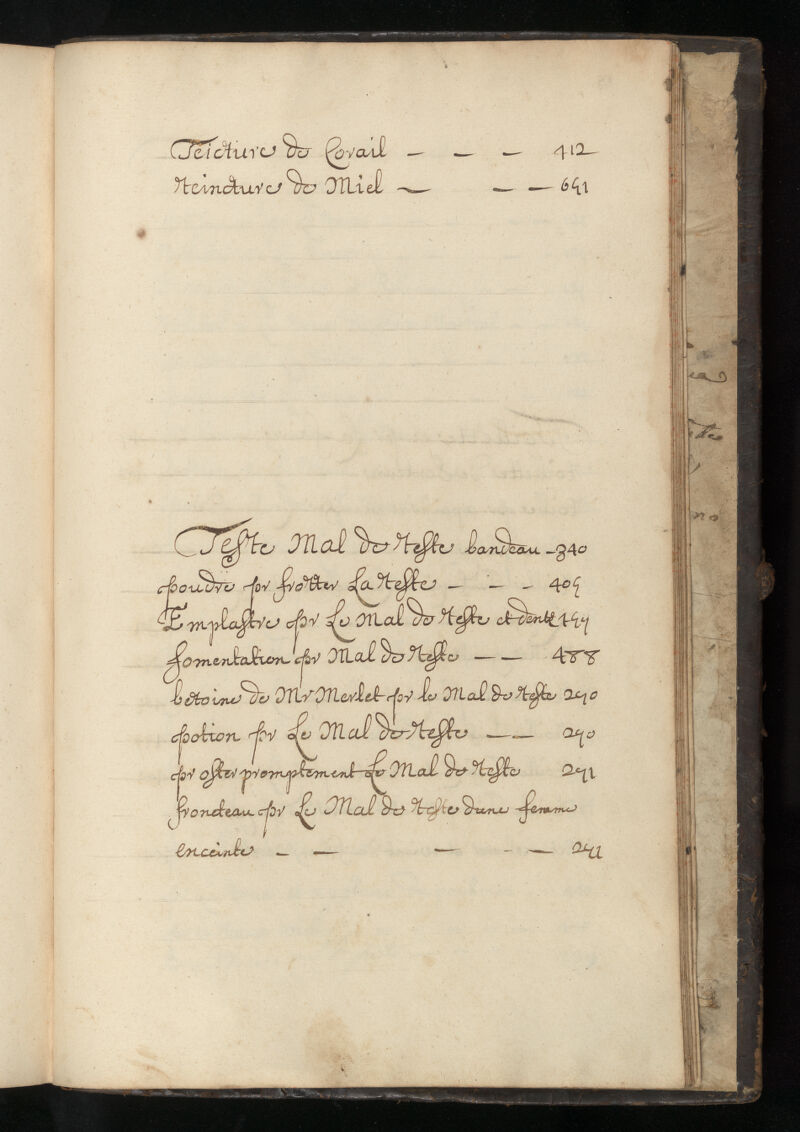 Teicture de Corail — — — 412
teincture de Miel — — — 651
Teste Mal de teste bandeau - 340
poudre pr frotter La teste — - - 405
Emplastre pr Le Mal de teste et dents
fomentation pr Mal de teste — — 488
betoine de Mr Merlet pr le Mal de teste 290
potion pr Le Mal de teste — — 290
pr oster promptement Le Mal de teste 291
fronteau pr Le Mal de teste dune femme
enceinte — — — - — 291